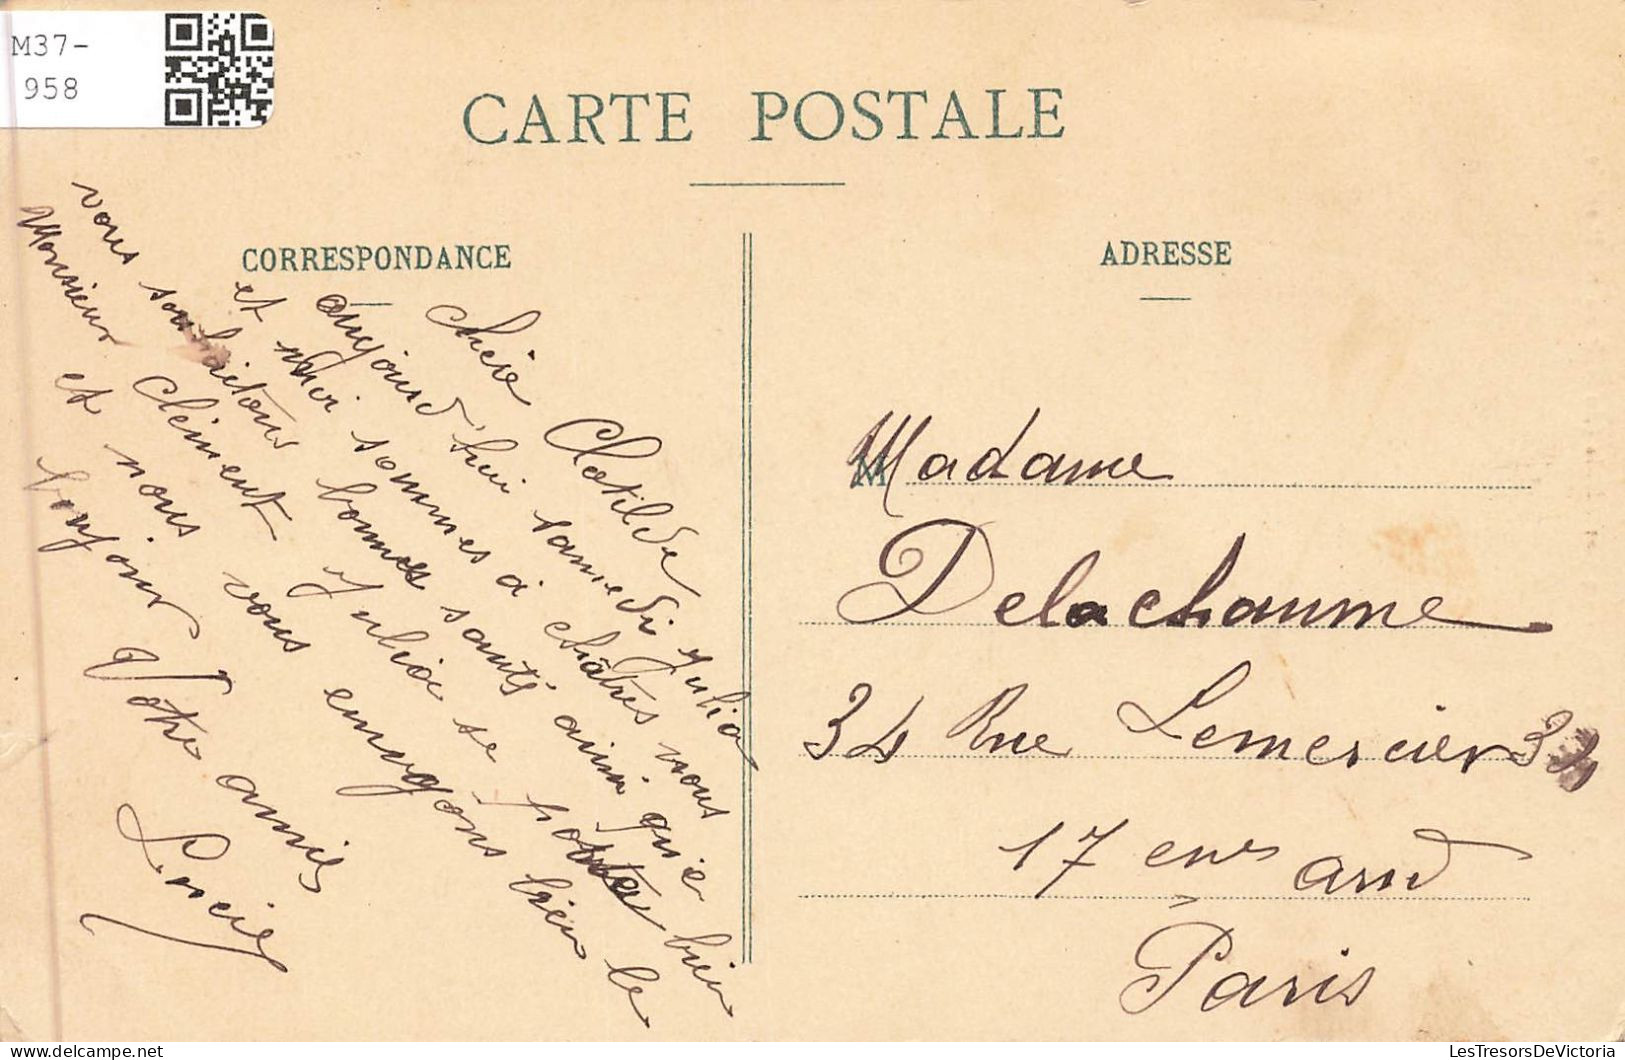 M37-
958
CARTE POSTALE
CORRESPONDANCE
ADRESSE
chère Clotilde
aujourd'hui samedi Julia
et moi sommes à châtres nous
vous souhaitons bonnes santé ainsi que
Monsieur Clément Julia se porte bien
et nous vous envoyons bien le
bonjour
Votre amie
Lucie
Madame
M
Delachaume
34 Rue Lemercier 34
17 em arrd
Paris
LesTresorsDeVictoria